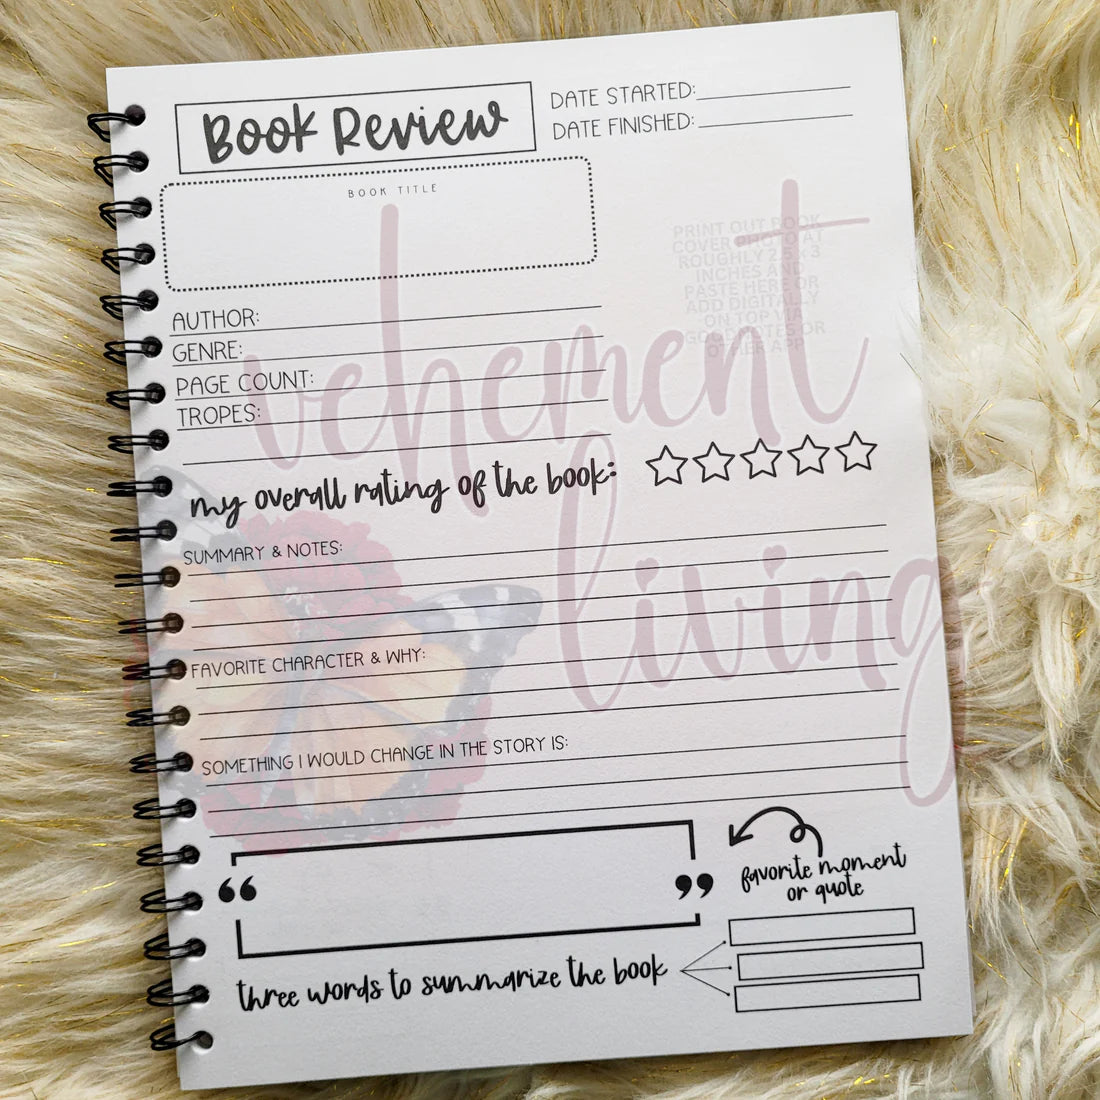 Book Review
DATE STARTED:
DATE FINISHED:
BOOK TITLE
PRINT OUT BOOK
COVER PHOTO AT
ROUGHLY 2.5 x 3
INCHES AND
PASTE HERE OR
ADD DIGITALLY
ON TOP VIA
GOODNOTES OR
OTHER APP
AUTHOR:
GENRE:
PAGE COUNT:
TROPES:
my overall rating of the book:
SUMMARY & NOTES:
FAVORITE CHARACTER & WHY:
SOMETHING I WOULD CHANGE IN THE STORY IS:
“ ”
favorite moment
or quote
three words to summarize the book
vehement
living